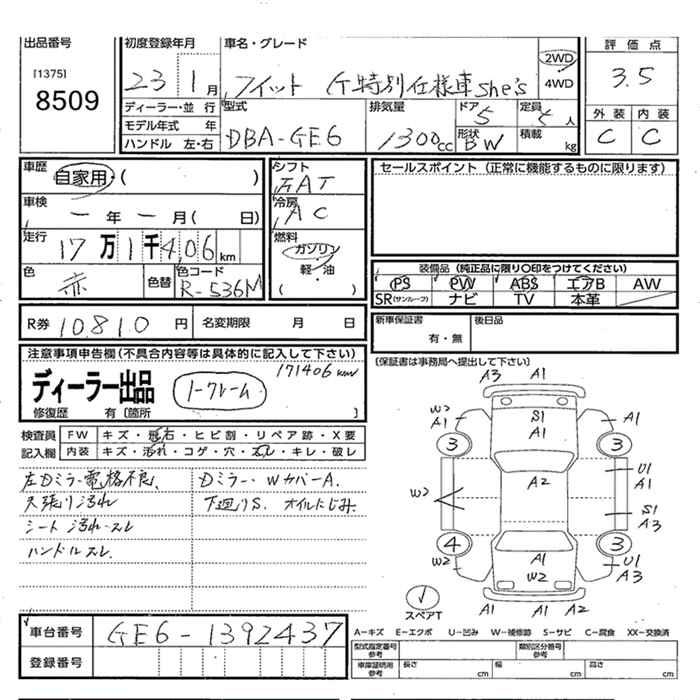 出品番号
[1375]
8509
初度登録年月
23 1月
車名・グレード
フィット G特別仕様車She's
2WD
4WD
評価点
3.5
外装 内装
C C
ディーラー・並行
モデル年式 年
ハンドル 左・右
型式
DBA-GE6
排気量
1300cc
ドア
5
形状
BW
定員
5人
積載
kg
車歴
自家用・( )
車検
一年一月( 日)
走行
17万1千406km
色
赤
色替
色コード
R-536M
シフト
FAT
冷房
AC
燃料
ガソリン
軽・油
( )
セールスポイント (正常に機能するものに限ります)
装備品 (純正品に限り○印をつけてください)
PS PW ABS エアB AW
SR(サンルーフ) ナビ TV 本革
R券 10810円
名変期限 月 日
新車保証書
有・無
後日品
(保証書は事務局へ提出して下さい)
注意事項申告欄(不具合内容等は具体的に記入して下さい)
171406km
ディーラー出品
ノークレーム
修復歴 有〔箇所 〕
検査員 FW キズ・飛石・ヒビ割・リペア跡・X要
記入欄 内装 キズ・汚れ・コゲ・穴・スレ・キレ・破レ
左Dミラー電格不良、
天張り汚れ
シート汚れ・スレ
ハンドルスレ、
Dミラー・WカバーA.
下廻りS. オイルにじみ
A3 A1
W2 A1
S1
A1
A1
3 3
A2
W2
U1
A1
S1
A3
4 3
W2
A1
W2
U1
A3
A1 A1 A2
スペアT
A−キズ E−エクボ U−凹み W−補修跡 S−サビ C−腐食 XX−交換済
車台番号 GE6-1392437
登録番号
型式指定番号
参考
類別区分番号
参考
車庫証明用
参考
長さ cm
幅 cm
高さ cm